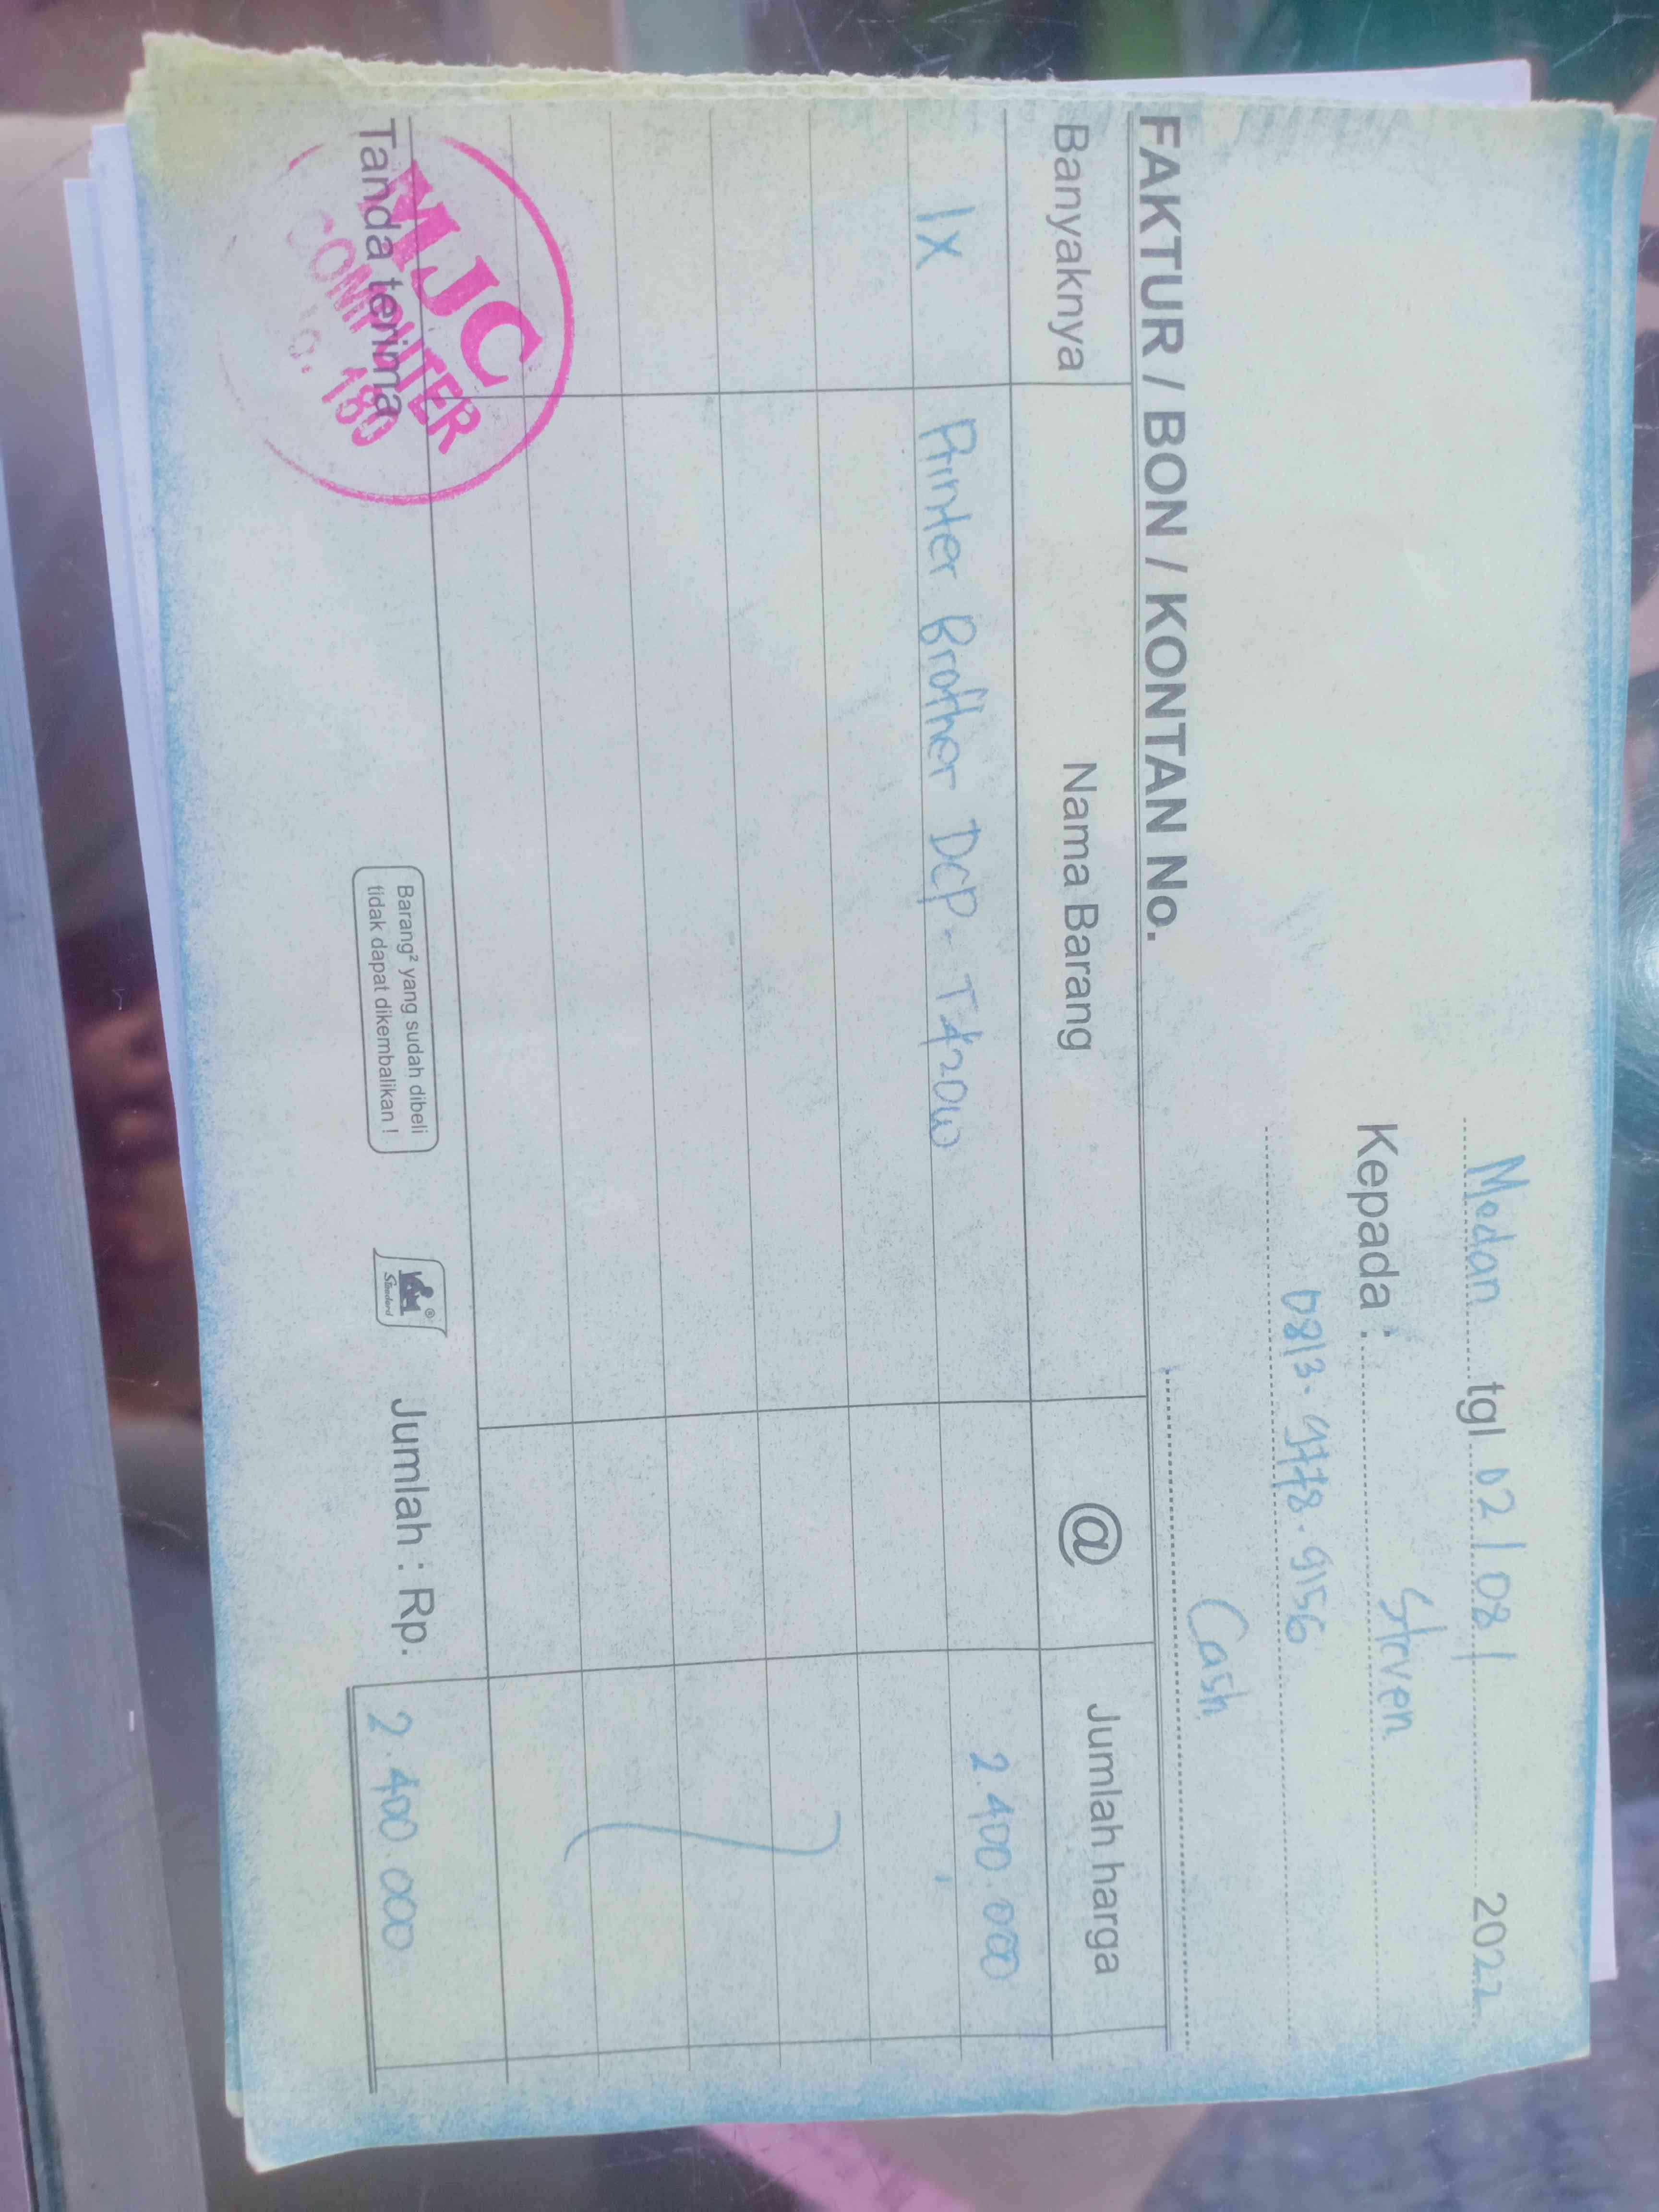 Medan tgl 02/08/ 2022
Kepada : Steven
Cash
FAKTUR / BON / KONTAN No.
Banyaknya Nama Barang @ Jumlah harga
1x Printer Brother DCP-T420W 2.400.000
Tanda terima
MJC
COMPUTER
180
Barang² yang sudah dibeli
tidak dapat dikembalikan !
Standard
Jumlah : Rp. 2.400.000